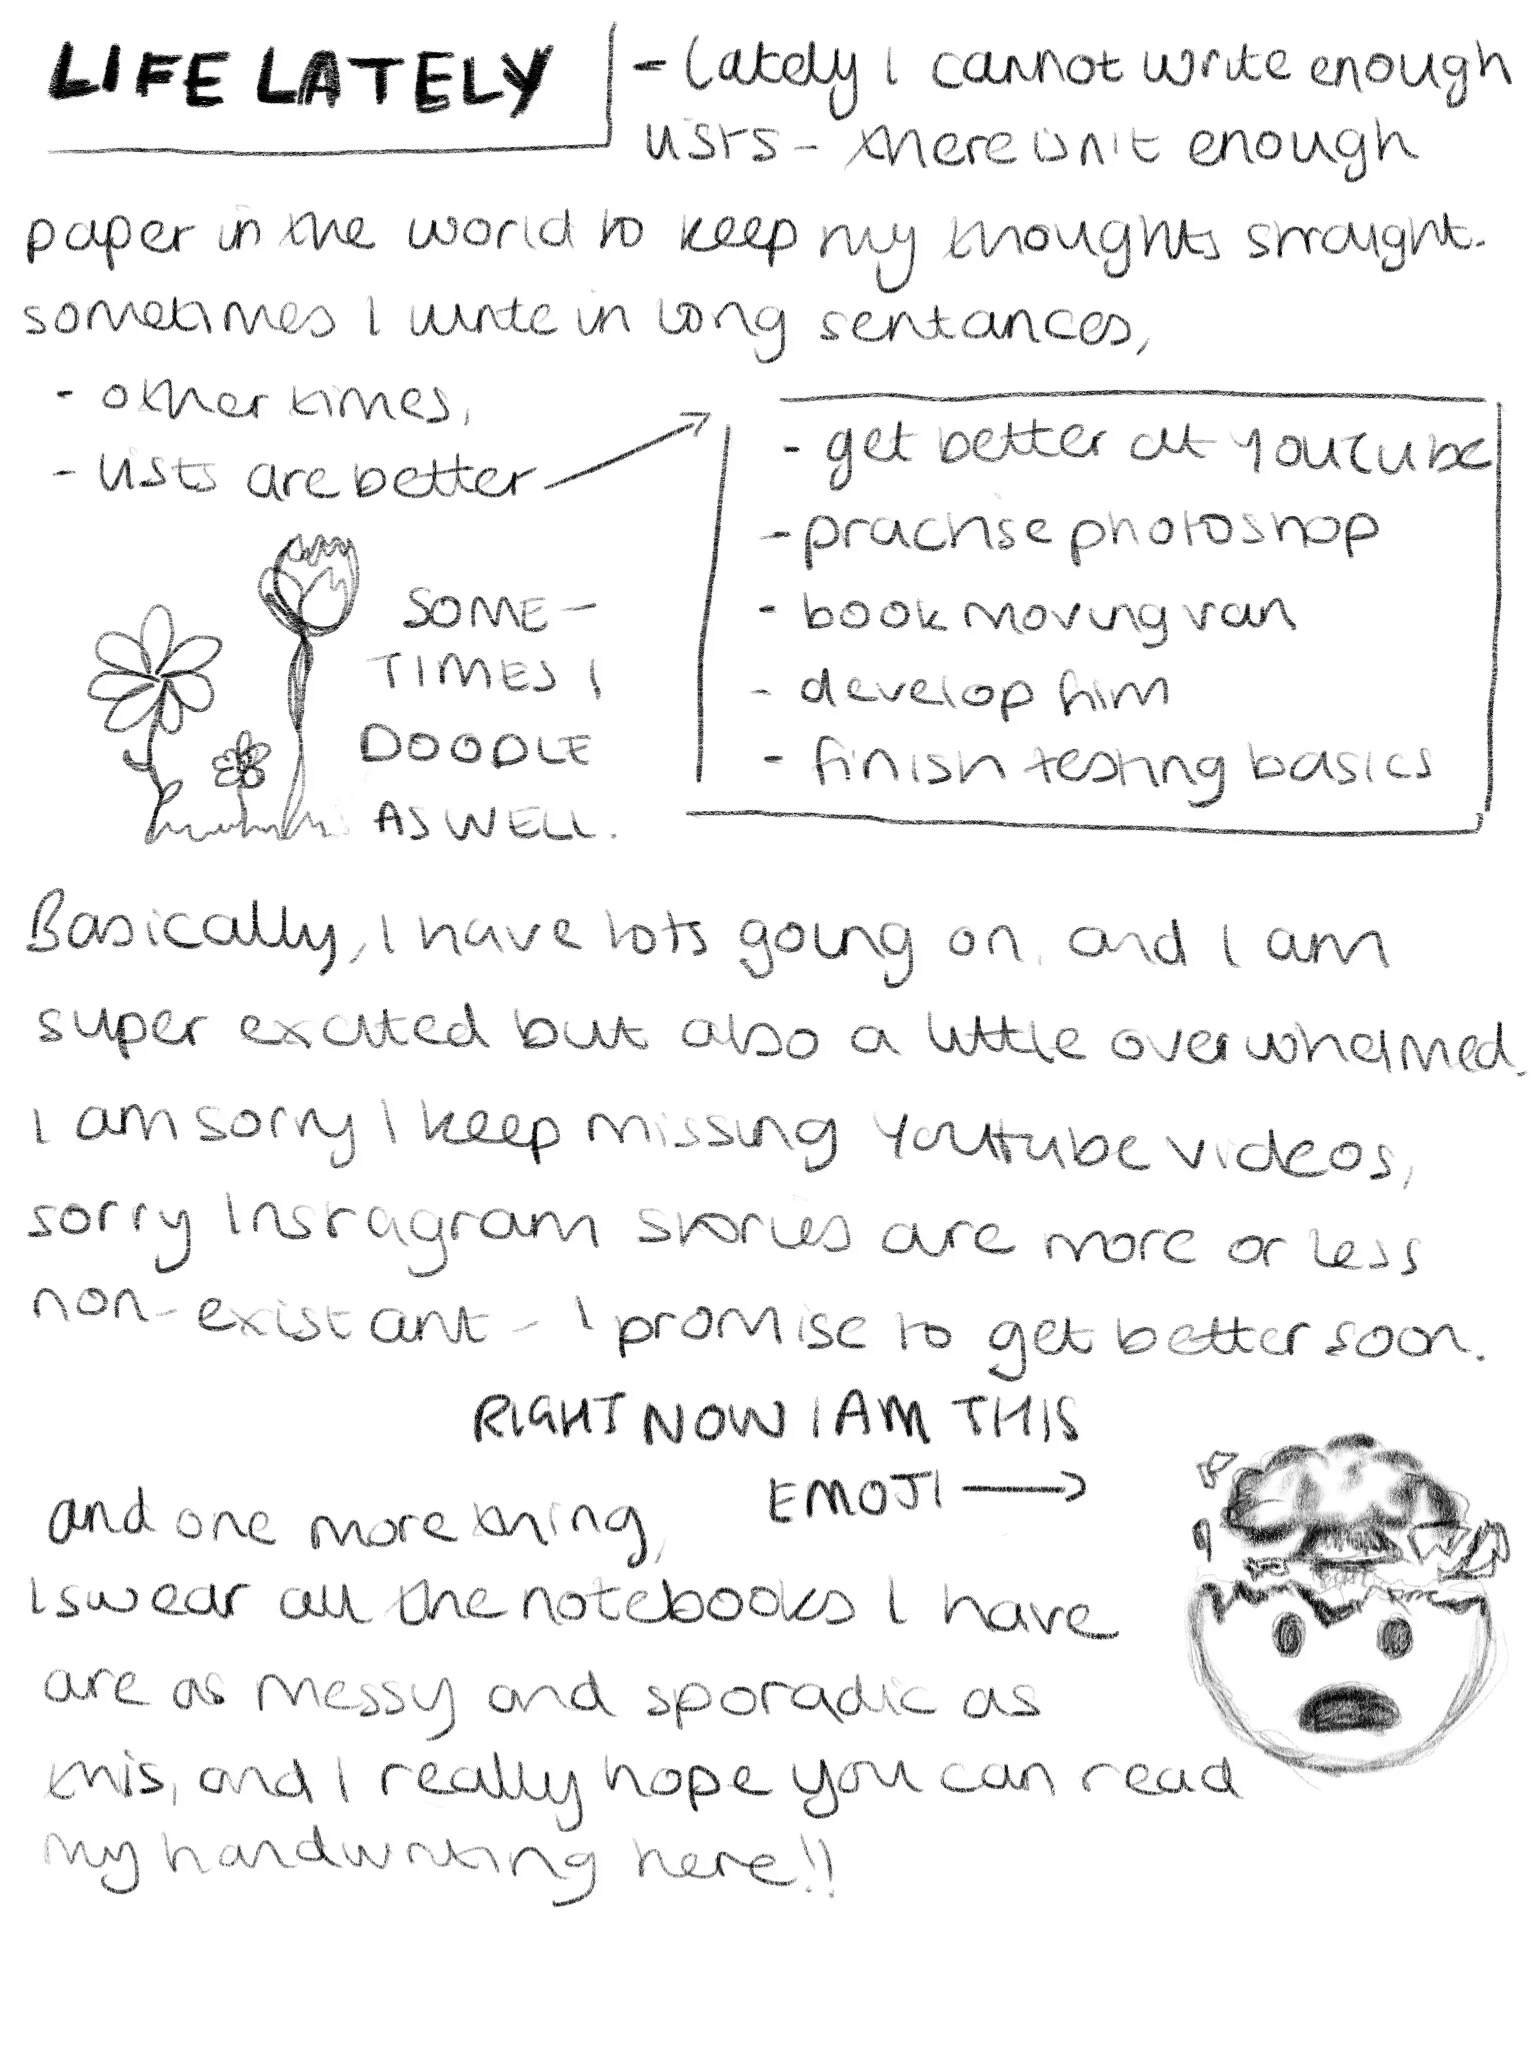 LIFE LATELY
- Lately I cannot write enough
lists - there isn't enough
paper in the world to keep my thoughts straight.
sometimes I write in long sentances,
- other times,
- lists are better
- get better at YouTube
- practise photoshop
- book moving van
- develop film
- finish testing basics
SOME-
TIMES I
DOODLE
AS WELL.
Basically, I have lots going on, and I am
super excited but also a little overwhelmed.
I am sorry I keep missing Youtube videos,
sorry Instagram stories are more or less
non-existant - I promise to get better soon.
RIGHT NOW I AM THIS
EMOJI
and one more thing,
I swear all the notebooks I have
are as messy and sporadic as
this, and I really hope you can read
my handwriting here!!